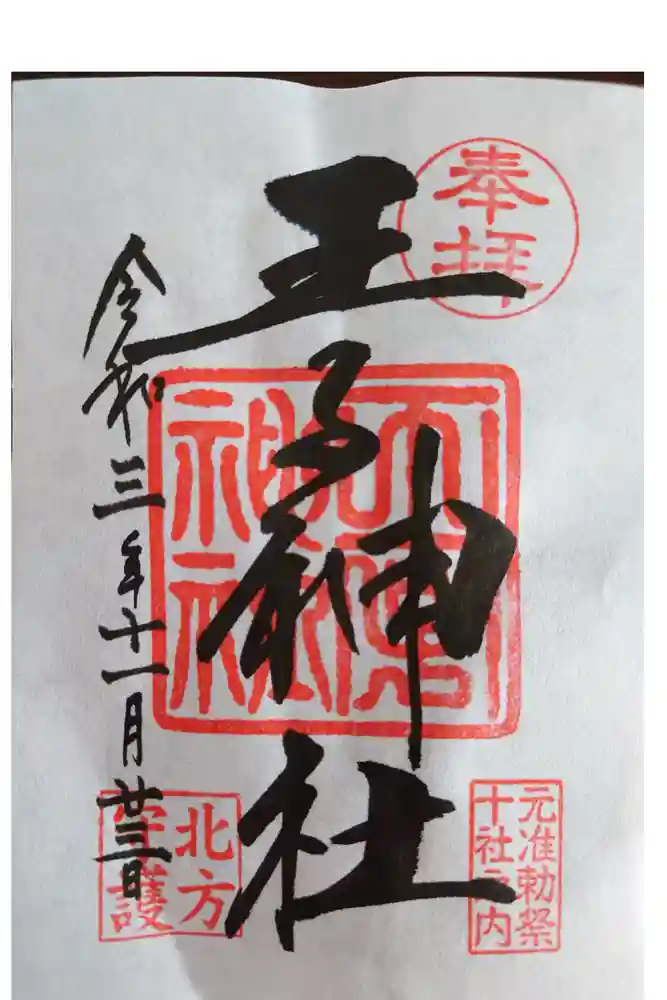 奉拝
王子神社
元准勅祭
十社之内
北方
守護
令和三年十一月廿三日